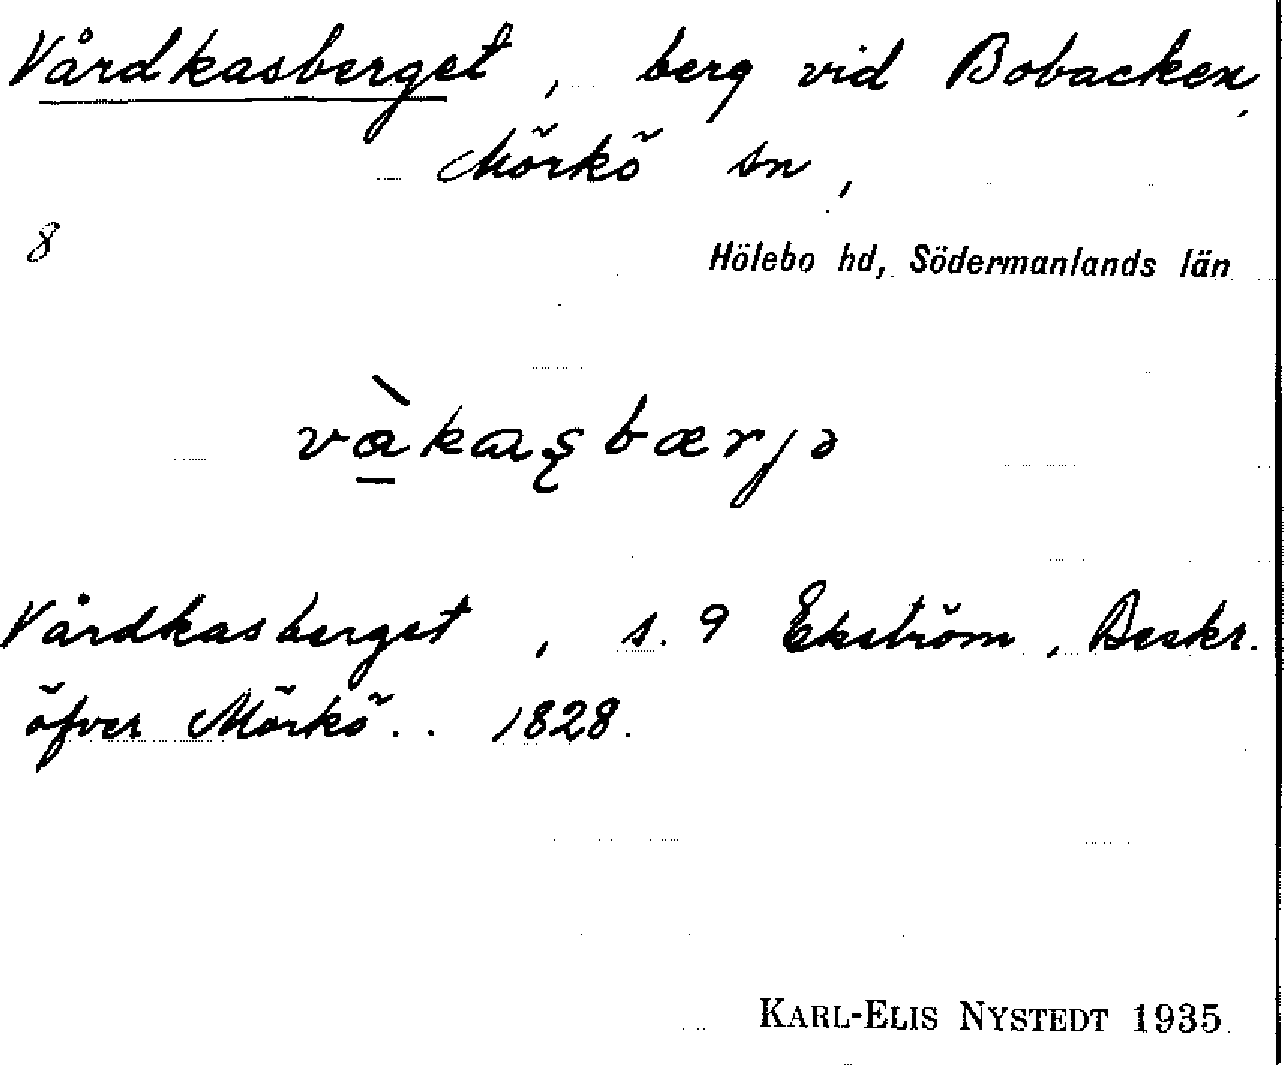 Vårdkasberget, berg vid Bobacken,
Mörkö sn,
8
Hölebo hd, Södermanlands län
và̱kaʂbærjə
Vårdkasberget, s. 9 Ekström, Beskr.
öfver Mörkö.. 1828.
KARL-ELIS NYSTEDT 1935.